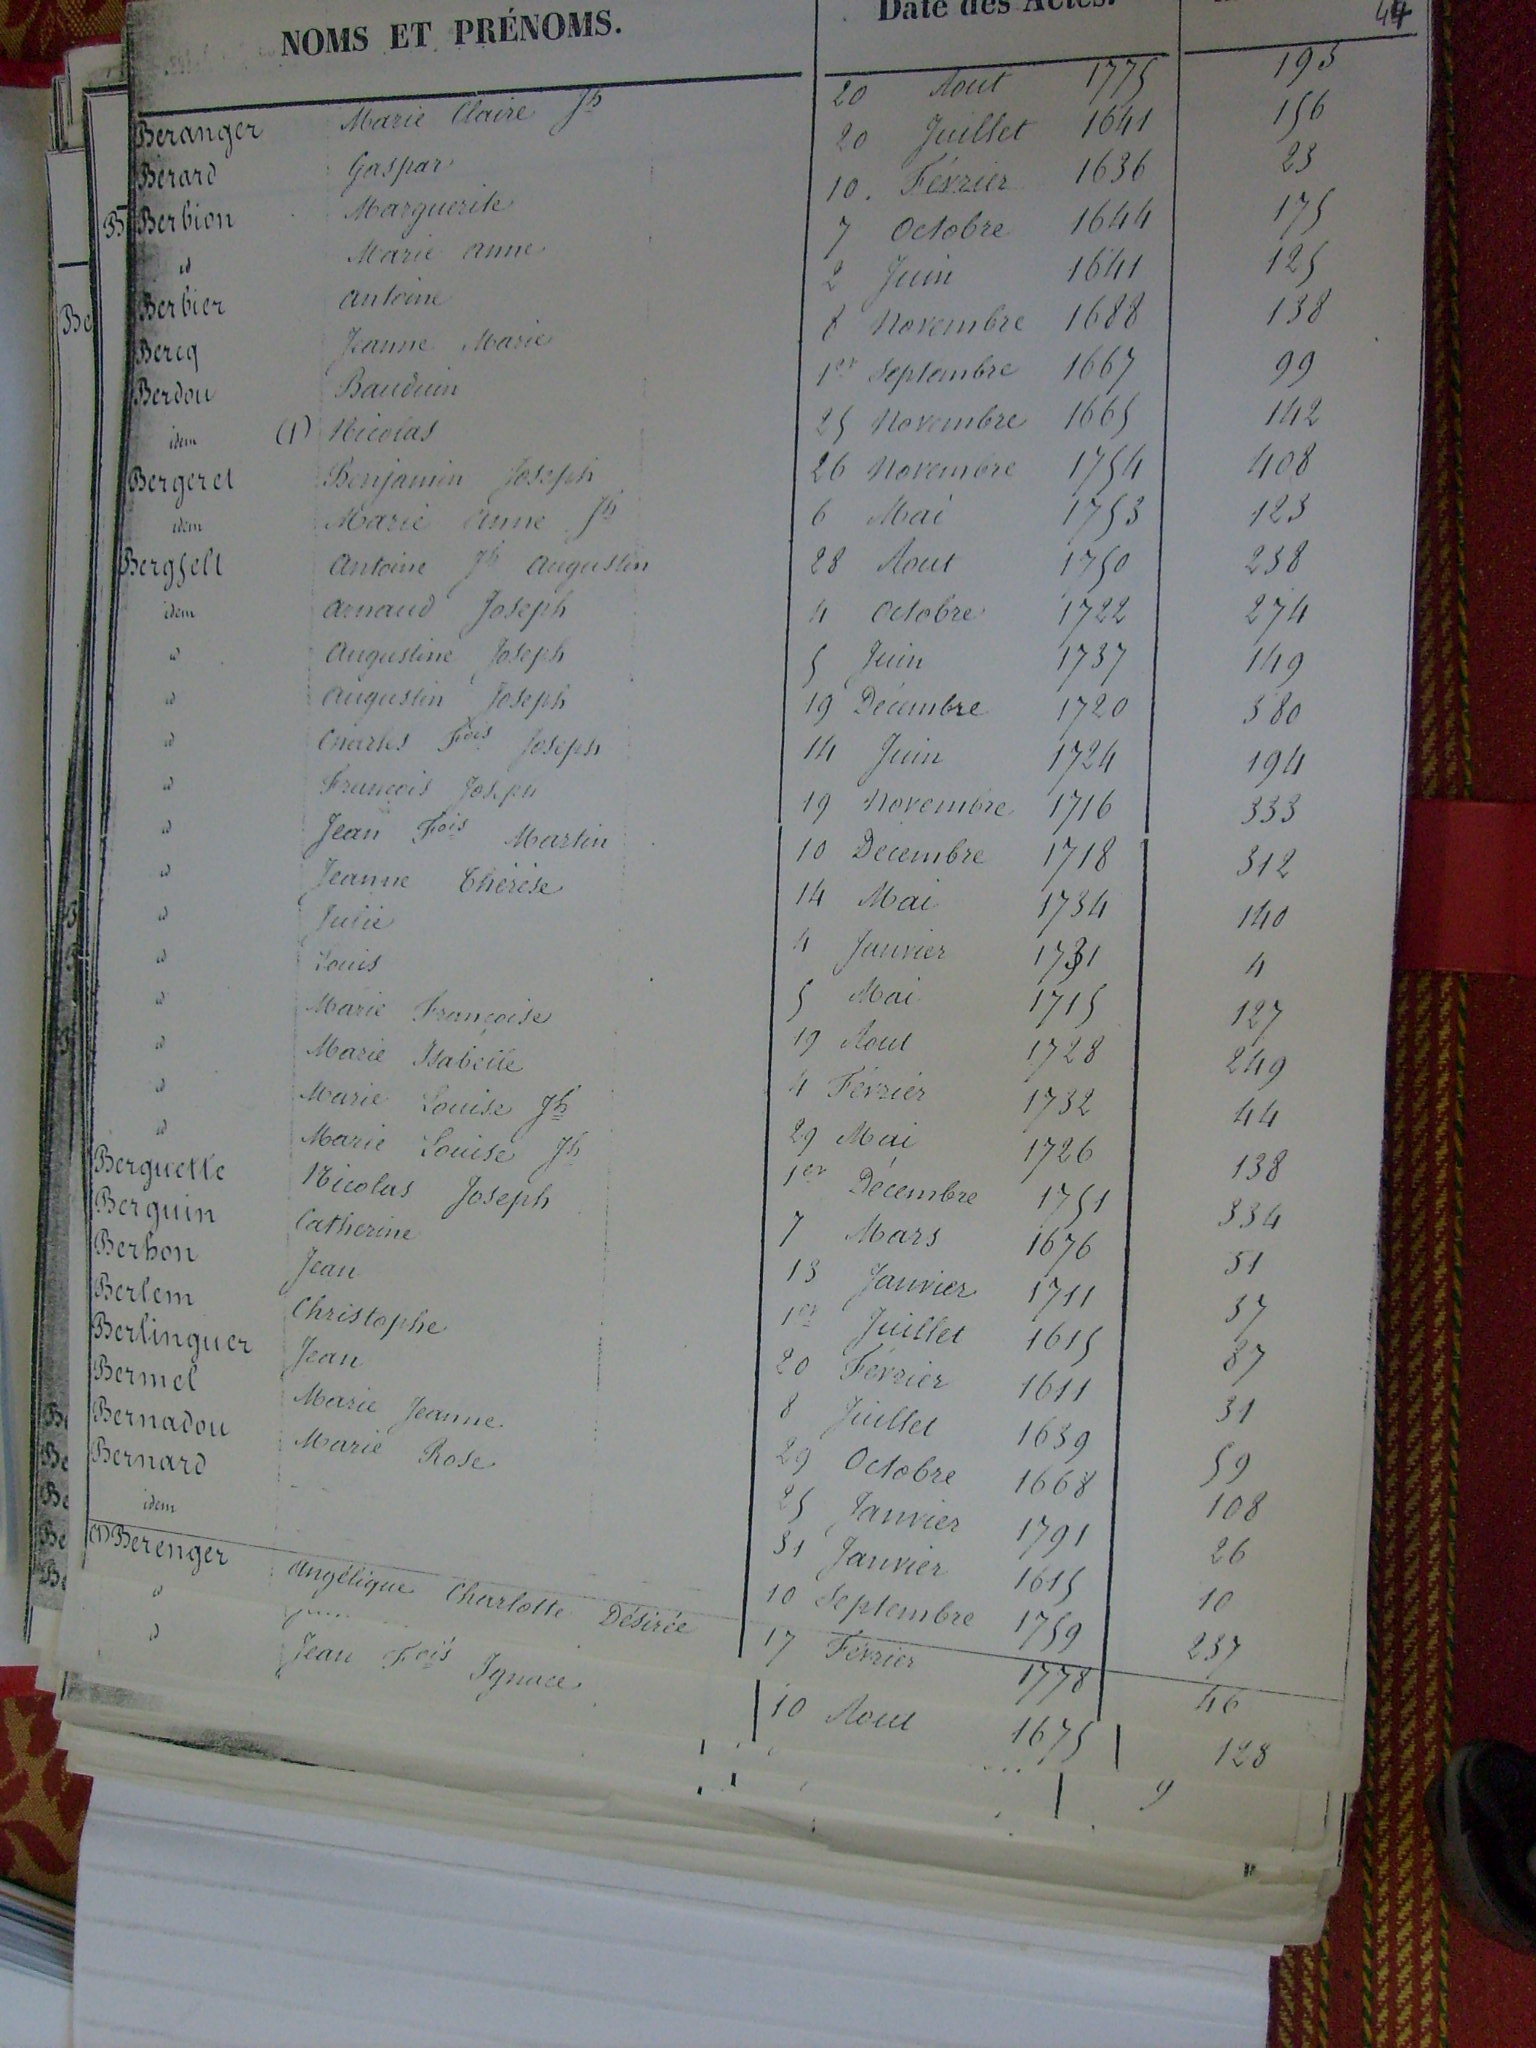 NOMS ET PRÉNOMS. Date des Actes. 44
Beranger Marie Claire Jh 20 Aout 1775 193
Berard Gaspar 20 Juillet 1641 156
Berbion Marguerite 10 Février 1636 23
id Marie Anne 7 Octobre 1644 175
Berbier Antoine 2 Juin 1641 125
Bercq Jeanne Marie 8 Novembre 1688 138
Berdou Bauduin 1er Septembre 1667 99
idem (1) Nicolas 25 Novembre 1665 142
Bergeret Benjamin Joseph 26 Novembre 1754 408
idem Marie Anne Jh 6 Mai 1753 123
Bergselt Antoine Jh Augustin 28 Aout 1750 238
idem Arnaud Joseph 4 Octobre 1722 274
id Augustine Joseph 5 Juin 1737 149
id Augustin Joseph 19 Décembre 1720 380
id Charles Fois Joseph 14 Juin 1724 194
id François Joseph 19 Novembre 1716 333
id Jean Fois Martin 10 Decembre 1718 312
id Jeanne Thérèse 14 Mai 1734 140
id Julie 4 Janvier 1731 4
id Louis 5 Mai 1715 127
id Marie Françoise 19 Aout 1728 249
id Marie Isabelle 4 Février 1732 44
id Marie Louise Jh 29 Mai 1726 138
id Marie Louise Jh 1er Décembre 1751 334
Berguette Nicolas Joseph 7 Mars 1676 51
Berguin Catherine 13 Janvier 1711 37
Berhon Jean 1er Juillet 1615 87
Berlem Christophe 20 Février 1611 31
Berlinguer Jean 8 Juillet 1639 59
Bermel Marie Jeanne 29 Octobre 1668 108
Bernadou Marie Rose 25 Janvier 1791 26
Bernard 31 Janvier 1615 10
idem 10 Septembre 1759 237
(1) Berenger Angélique Charlotte Désirée 17 Février 1778 46
id 10 Aout 1675 128
id Jean Fois Ignace 9